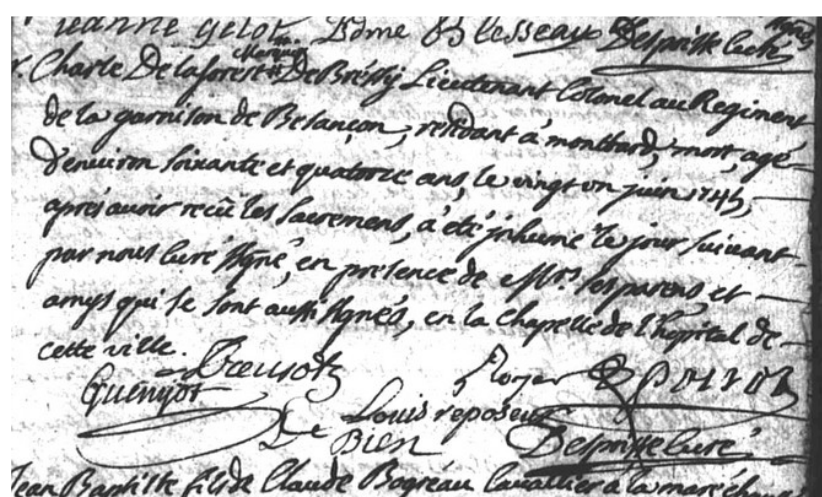 jeanne gelot Edme Blesseau Despritte Curé
Charle Delaforest Marquis De Bressy Lieutenant Colonel au Regiment
de la garnison de Besançon, residant a montbard, mort, agé
d'environ soixante et quatorze ans, le vingt un juin 1745,
aprés avoir recû les Sacremens, a été jnhumé le jour suivant
par nous Curé ssigné, en presence de Mrs. ses parens, et
amys qui se sont aussi ssignés, en la chapelle de l'hopital de
cette ville.
Guenyot Daubenton Royer
Louis reposeur
De Bien Despritte Curé
Jean Baptiste fils de Claude Bogreau Cavallier a la